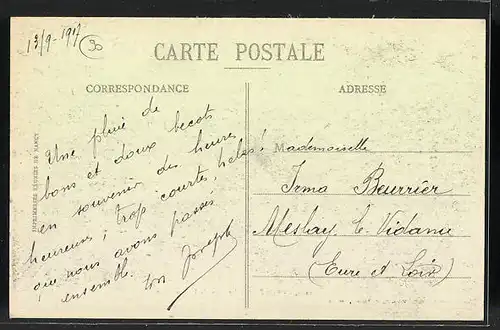 13/9-1917
30
CARTE POSTALE
CORRESPONDANCE
ADRESSE
Une pluie de
bons et doux becots
en souvenir des heures
heureuses, trop courtes, hélas!
que nous avons passés
ensemble.
ton Joseph
Mademoiselle
Irma Beurrier
Meslay le Vidame
(Eure et Loir)
IMPRIMERIES RÉUNIES DE NANCY